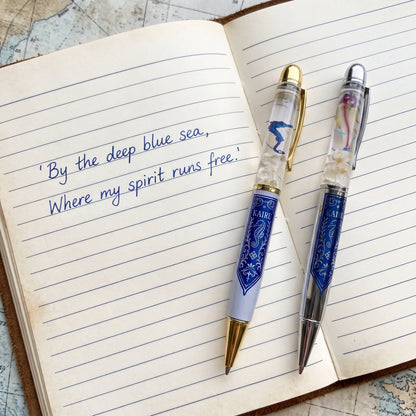 'By the deep blue sea,
Where my spirit runs free.'
KAIRI
KAIRI